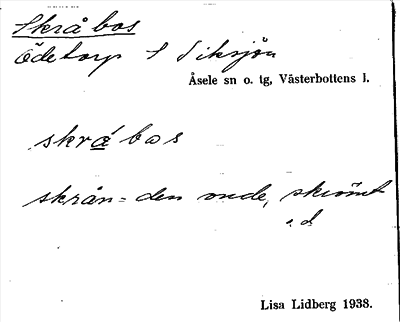 Skråbos
Ödetorp S Siksjön
Åsele sn o. tg, Västerbottens l.
skråbos
skrån = den onde, skrömt
o. d.
Lisa Lidberg 1938.